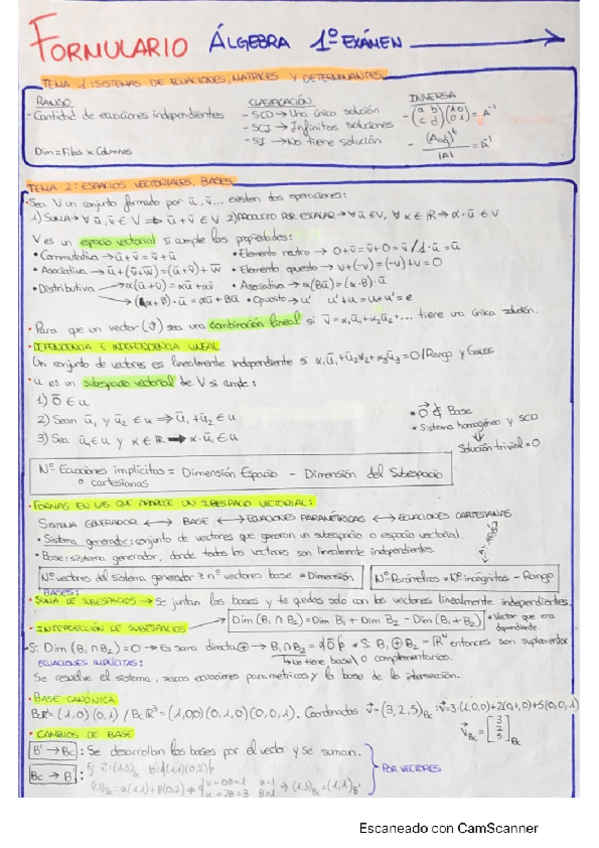 FORMULARIO ÁLGEBRA 1º EXÁMEN
TEMA 1: SISTEMAS DE ECUACIONES, MATRICES Y DETERMINANTES
RANGO
- Cantidad de ecuaciones independientes
Dim = Filas x Columnas
CLASIFICACIÓN
- SCD → Una única solución
- SCI → Infinitas soluciones
- SI → No tiene solución
INVERSA
TEMA 2: ESPACIOS VECTORIALES, BASES
• Sea V un conjunto formado por ū, v̄... existen dos operaciones:
1) SUMA → ∀ ū, v̄ ∈ V ⇒ ū + v̄ ∈ V 2) PRODUCTO POR ESCALAR → ∀ ū ∈ V, ∀ α ∈ ℝ → α·ū ∈ V
V es un espacio vectorial si cumple las propiedades:
• Conmutativa → ū + v̄ = v̄ + ū • Elemento neutro → 0 + v̄ = v̄ + 0 = v̄ / 1·ū = ū
• Asociativa → ū + (v̄ + w̄) = (ū + v̄) + w̄ • Elemento opuesto → v + (-v) = (-v) + v = 0
• Distributiva • Asociativa • Opuesto → u' u' + u = u + u' = e
• Para que un vector (v̄) sea una combinación lineal si v̄ = α₁ū₁ + α₂ū₂ + ... tiene una única solución.
• DEPENDENCIA E INDEPENDENCIA LINEAL
Un conjunto de vectores es linealmente independiente si = 0 / Rango y Gauss
• U es un subespacio vectorial de V si cumple:
1) 0̄ ∈ u
2) Sean ū₁ y ū₂ ∈ u ⇒ ū₁ + ū₂ ∈ u
3) Sea ū₁ ∈ u y α ∈ ℝ → α·ū₁ ∈ u
• 0̄ ∉ Base
• Sistema homogéneo y SCD
Solución trivial = 0
Nº Ecuaciones implícitas = Dimensión Espacio - Dimensión del Subespacio
o cartesianas
• FORMAS EN LAS QUE APARECE UN SUBESPACIO VECTORIAL:
SISTEMA GENERADOR ↔ BASE ↔ ECUACIONES PARAMÉTRICAS ↔ ECUACIONES CARTESIANAS
• Sistema generador: conjunto de vectores que generan un subespacio o espacio vectorial.
• Base: sistema generador, donde todos los vectores son linealmente independientes
Nº vectores del sistema generador ≥ nº vectores base = Dimensión
Nº Parámetros = Nº incógnitas - Rango
BASES:
• SUMA DE SUBESPACIOS → Se juntan las bases y te quedas solo con los vectores linealmente independientes.
• INTERSECCIÓN DE SUBESPACIOS → Dim (B₁ ∩ B₂) = Dim B₁ + Dim B₂ - Dim (B₁ + B₂)
• Vector que era dependiente.
• Si Dim (B₁ ∩ B₂) = 0 → Es suma directa ⊕ → B₁ ∩ B₂ = {0̄} • Si B₁ ⊕ B₂ = ℝᴺ entonces son
No tiene base o complementarios.
ECUACIONES IMPLÍCITAS:
Se resuelve el sistema, sacas ecuaciones paramétricas y la base de la intersección.
• BASE CANÓNICA
Bcℝ² = (1,0)(0,1) / Bcℝ³ = (1,0,0)(0,1,0)(0,0,1). Coordenadas v̄ = (3,2,5)Bc : v̄ = 3·(1,0,0) + 2(0,1,0) + 5(0,0,1)
v̄Bc = [3 2 5]Bc
• CAMBIOS DE BASE
B' → Bc : Se desarrollan las bases por el vector y se suman.
Bc → B' :
POR VECTORES
Escaneado con CamScanner